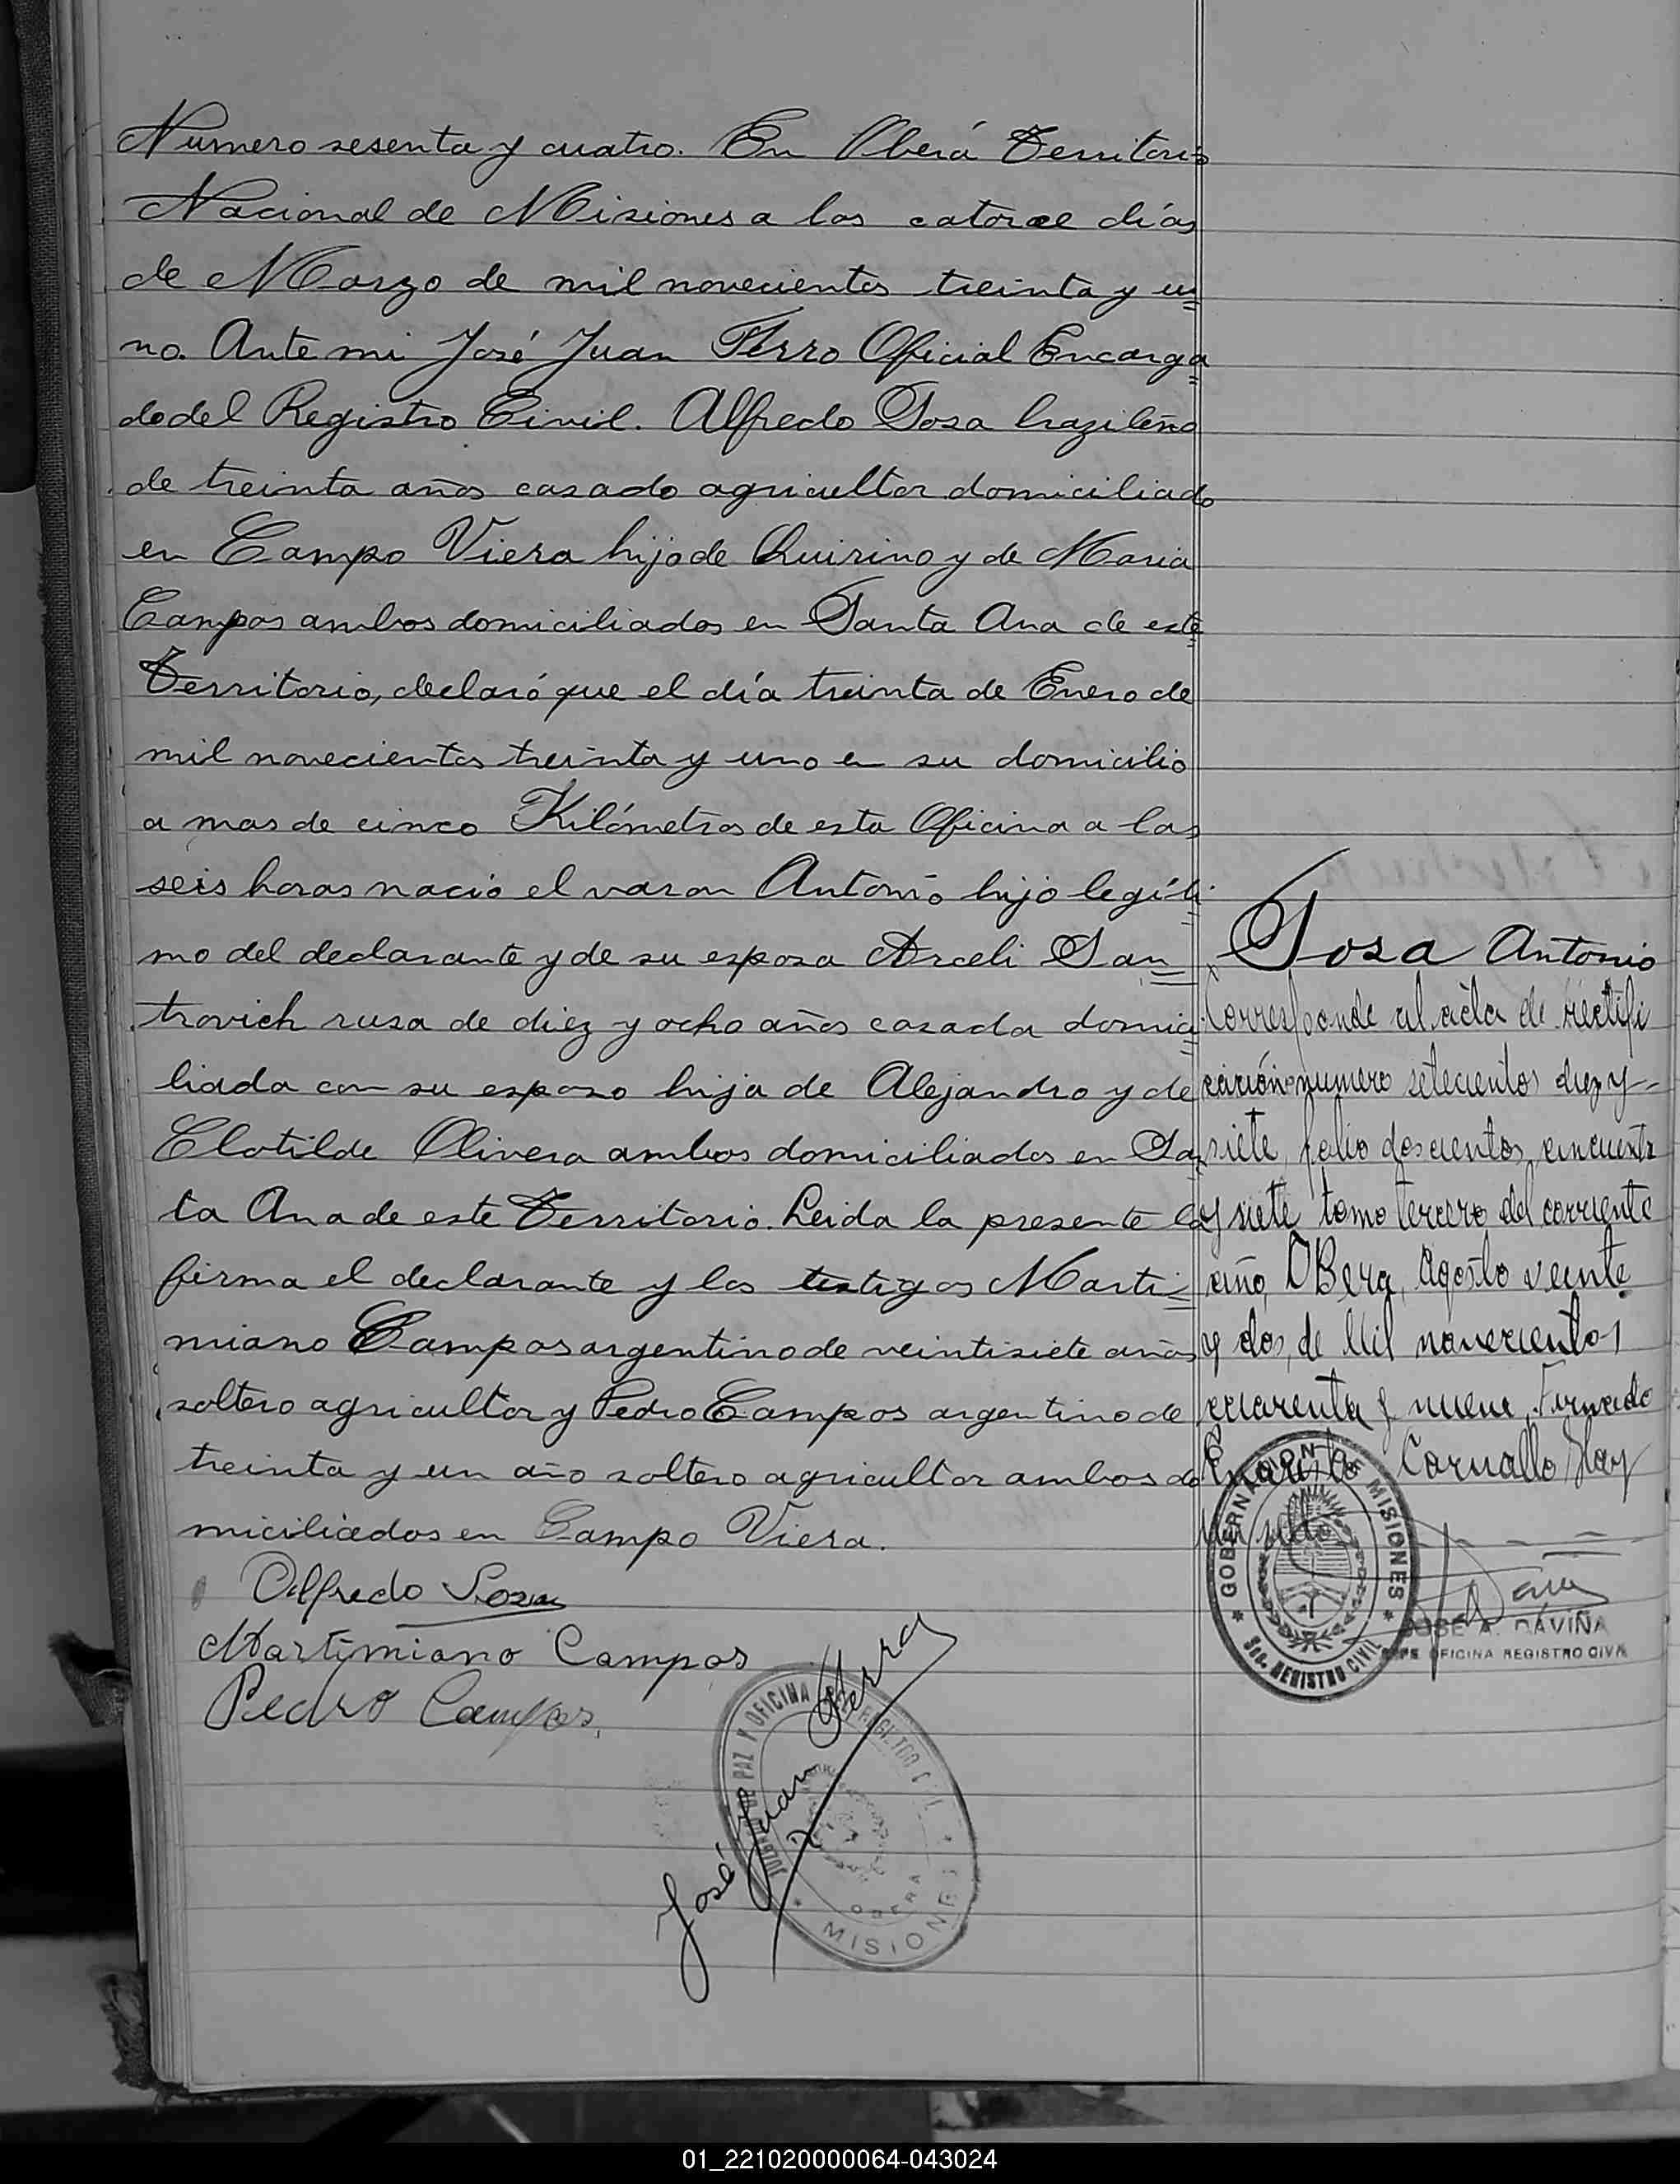 Numero sesenta y cuatro. En Oberá Territorio
Nacional de Misiones a los catorce días
de Marzo de mil novecientos treinta y u=
no. Ante mi José Juan Ferro Oficial Encarga=
do del Registro Civil. Alfredo Sosa brazileño
de treinta años casado agricultor domiciliado
en Campo Viera hijo de Quirino y de Maria
Campos ambos domiciliados en Santa Ana de este
Territorio, declaró que el día treinta de Enero de
mil novecientos treinta y uno en su domicilio
a mas de cinco Kilómetros de esta Oficina a las
seis horas nació el varon Antonio hijo legíti=
mo del declarante y de su esposa Arceli San=
trovich rusa de diez y ocho años casada domici=
liada con su esposo hija de Alejandro y de
Clotilde Olivera ambos domiciliados en San
ta Ana de este Territorio. Leida la presente la
firma el declarante y los testigos Marti=
miano Campos argentino de veintisiete años
soltero agricultor y Pedro Campos argentino de
treinta y un año soltero agricultor ambos do
miciliados en Campo Viera.
Alfredo Sosa
Martimiano Campos
Pedro Campos.
José Juan Ferro
JUZGADO DE PAZ Y OFICINA DEL REGISTRO CIVIL
OBERA
MISIONES
Sosa Antonio
Corresponde al acta de rectifi
cación numero setecientos diez y
siete, folio doscientos cincuenta
y siete tomo tercero del corriente
año, OBera, Agosto veinte
y dos, de Mil novecientos
cuarenta y nueve. Firmado
Evaristo Carvallo Hay
un sello
GOBERNACION DE MISIONES
SEC. REGISTRO CIVIL
JOSE A. DAVIÑA
JEFE OFICINA REGISTRO CIVIL
01_221020000064-043024